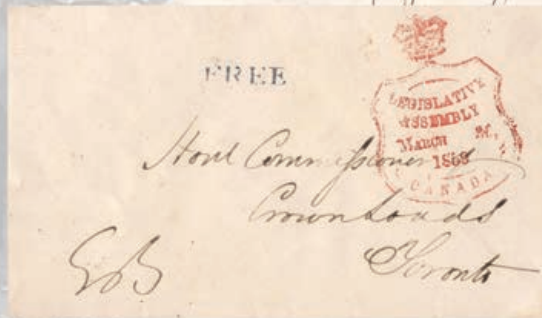 FREE
LEGISLATIVE
ASSEMBLY
MARCH
CANADA
Honl Commissioner
Crown Lands
Toronto